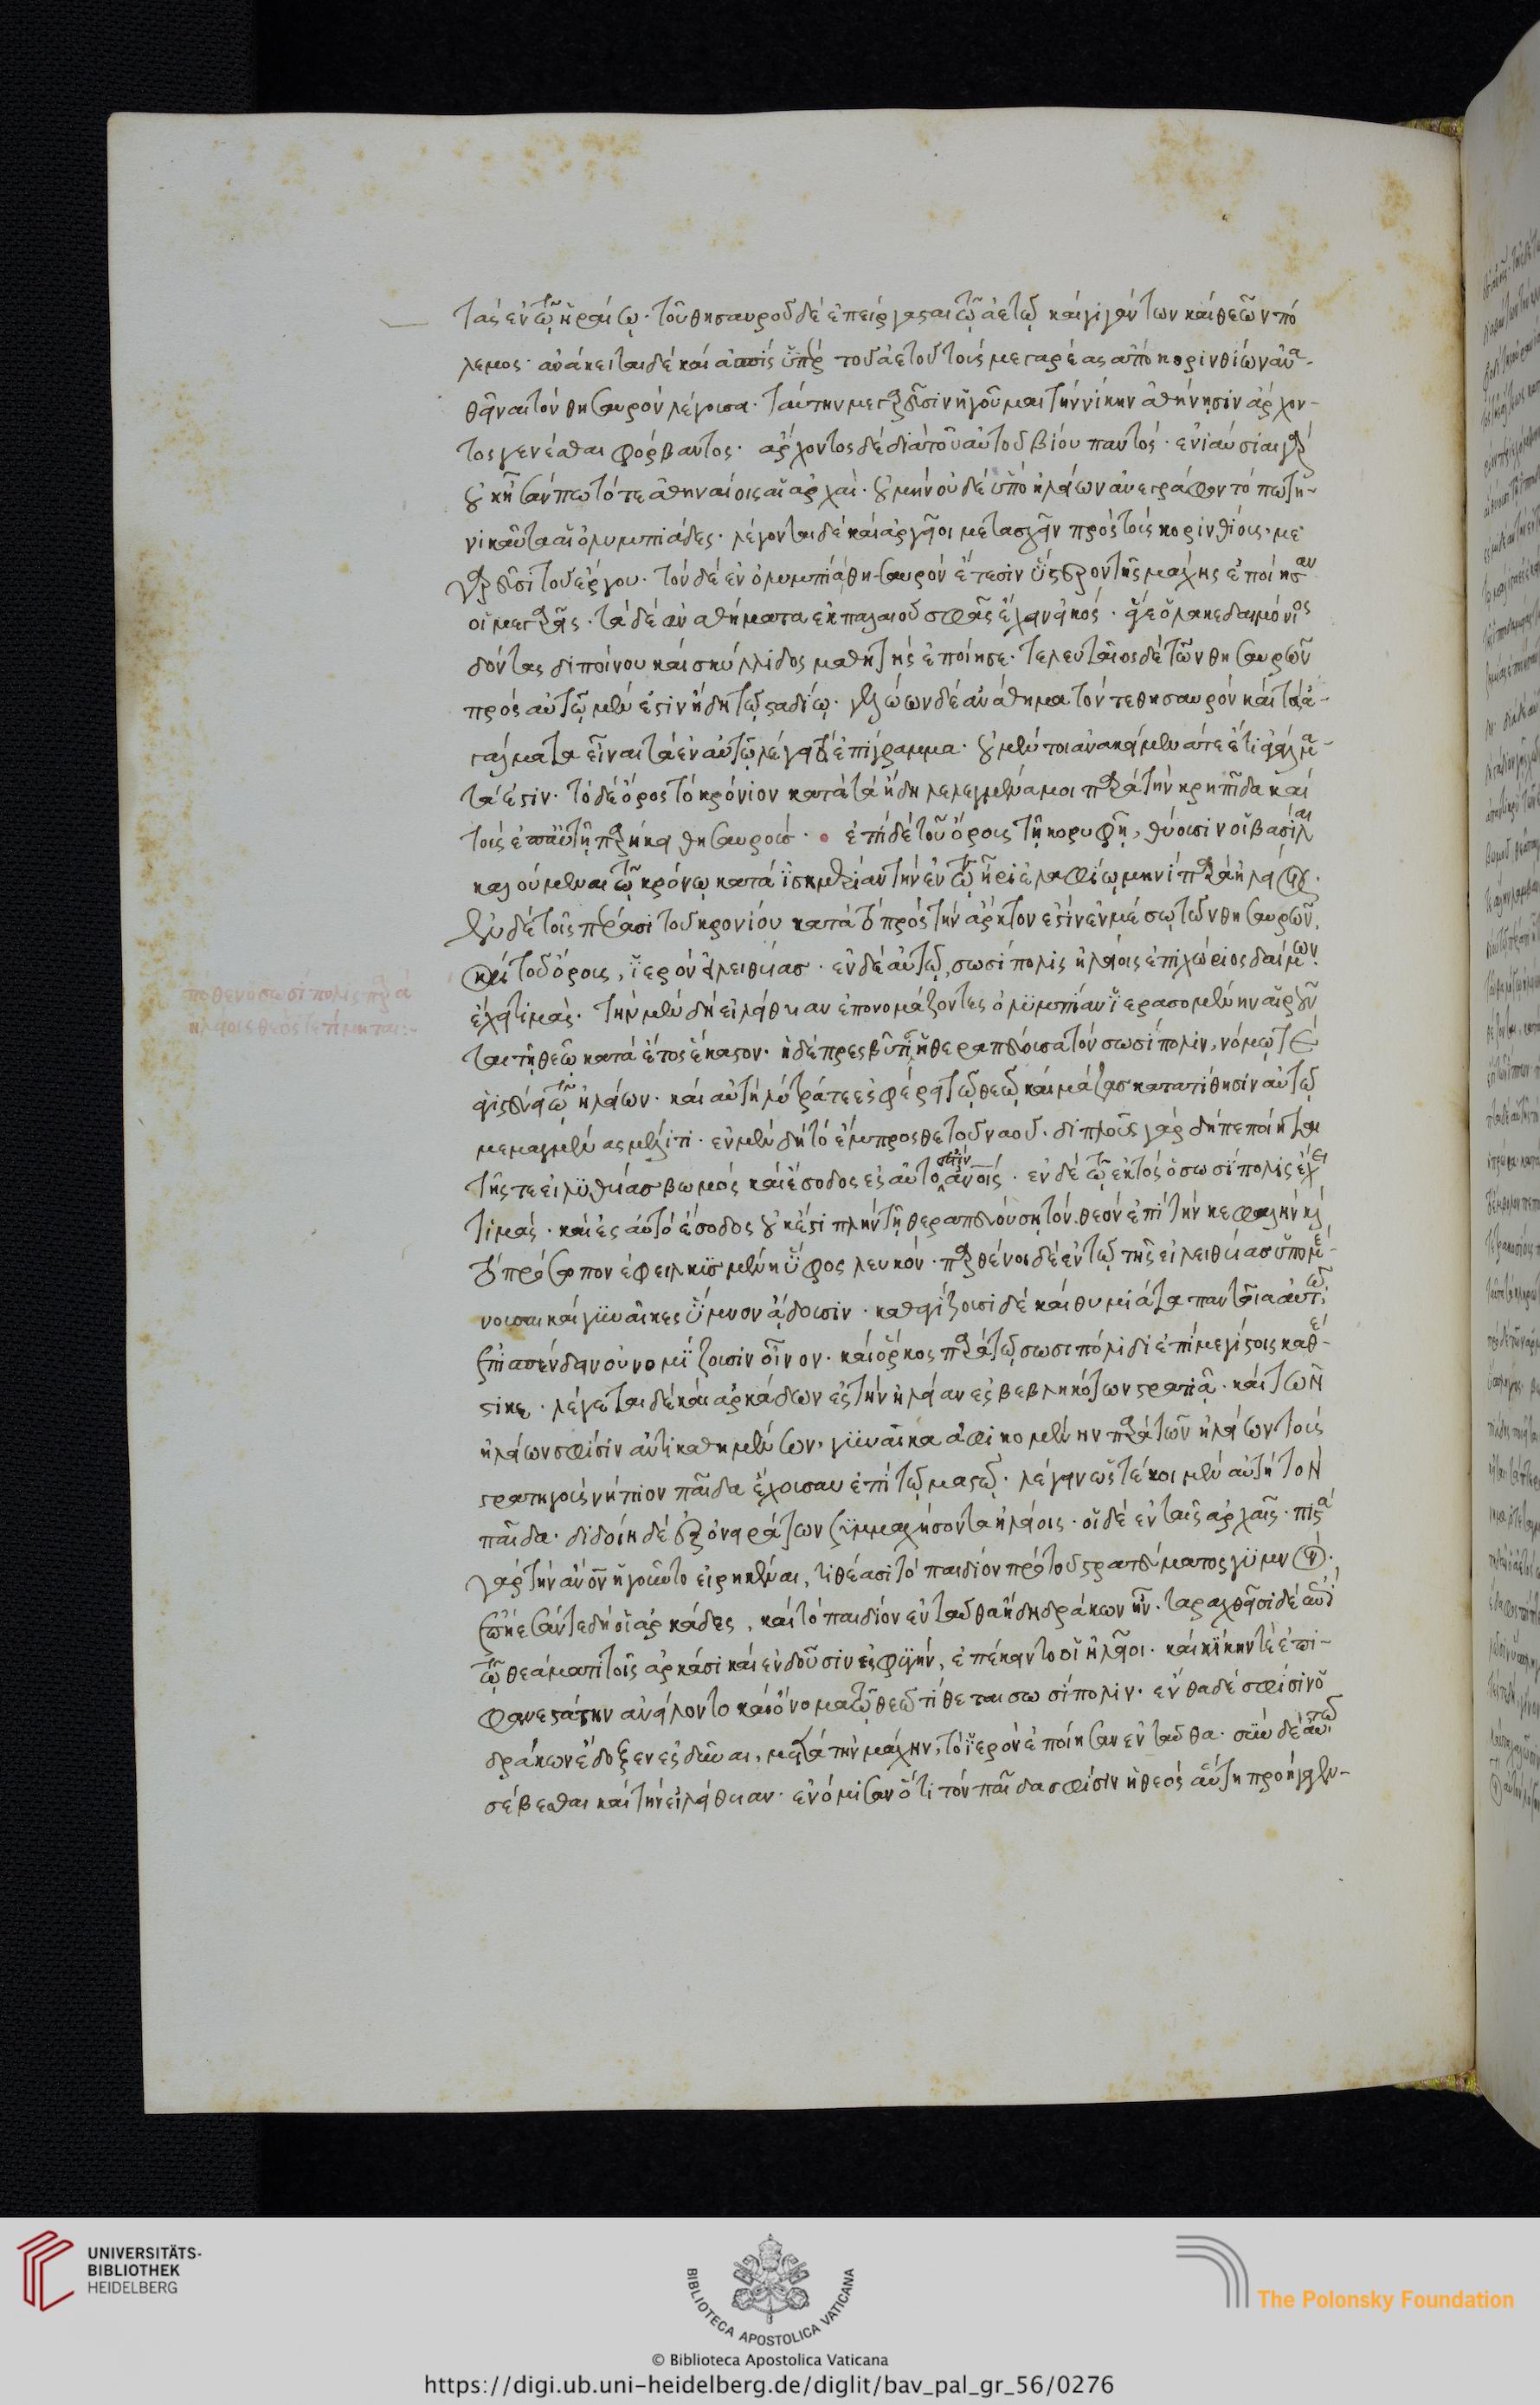 τὰς ἐν τῷ ἡραίῳ. τοῦ θησαυροῦ δὲ ἐπείργασται τῷ ἀετῷ καὶ γιγάντων καὶ θεῶν πό
λεμος· ἀνάκειται δὲ καὶ ἀσπὶς ὑπὲρ τοῦ ἀετοῦ τοὺς μεγαρέας ἀπὸ κορινθίων ἀνα-
θεῖναι τὸν θησαυρὸν λέγουσα. ταύτην μεγαρεῦσιν ἡγοῦμαι τὴν νίκην ἀθήνησιν ἄρχον-
τος γενέσθαι φόρβαντος· ἄρχοντος δὲ διὰ τοῦ αὑτοῦ βίου παντός· ἐνιαύσιαι γὰρ
οὐκ ἦσάν πω τότε ἀθηναίοις αἱ ἀρχαί· οὐ μὴν οὐδὲ ὑπὸ ἠλείων ἀνεγράφοντό πω τη-
νικαῦτα αἱ ὀλυμπιάδες. λέγονται δὲ καὶ ἀργεῖοι μετασχεῖν πρὸς τοὺς κορινθίους, με
γαρεῦσι τοῦ ἔργου. τὸν δὲ ἐν ὀλυμπίᾳ θησαυρὸν ἔτεσιν ὕστερον τῆς μάχης ἐποίησαν
οἱ μεγαρεῖς. τὰ δὲ ἀναθήματα ἐκ παλαιοῦ σφᾶς ἔχειν εἰκός· ἅ γε ὁ λακεδαιμόνιος
δόντας διποίνου καὶ σκύλλιδος μαθητὴς ἐποίησε. τελευταῖος δὲ τῶν θησαυρῶν
πρὸς αὐτῷ μέν ἐστιν ἤδη τῷ σταδίῳ. γελώων δὲ ἀνάθημα τόν τε θησαυρὸν καὶ τὰ ἀ-
γάλματα εἶναι τὰ ἐν αὐτῷ λέγει τὸ ἐπίγραμμα· οὐ μέντοι ἀνακείμενά γε ἔτι ἀγάλμα-
τά ἐστιν. τὸ δὲ ὄρος τὸ κρόνιον κατὰ τὰ ἤδη λελεγμένα μοι παρὰ τὴν κρηπῖδα καὶ
τοὺς ἐπ' αὐτῇ παρήκει θησαυρούς. ἐπὶ δὲ τοῦ ὄρους τῇ κορυφῇ, θύουσιν οἱ βασίλαι
καλούμενοι τῷ κρόνῳ κατὰ ἰσημερίαν τὴν ἐν τῷ ἦρι ἐλαφίῳ μηνὶ παρὰ ἠλείοις.
ἐν δὲ τοῖς πέρασι τοῦ κρονίου κατὰ τὸ πρὸς τὴν ἄρκτον ἐστὶν ἐν μέσῳ τῶν θησαυρῶν,
καὶ τοῦ ὄρους, ἱερὸν εἰλειθυίας. ἐν δὲ αὐτῷ, σωσίπολις ἠλείοις ἐπιχώριος δαίμων.
ἔχει τιμάς. τὴν μὲν δὴ εἰλείθυιαν ἐπονομάζοντες ὀλυμπίαν ἱερασομένην αἱροῦν
ται τῇ θεῷ κατὰ ἔτος ἕκαστον· ἡ δὲ πρεσβῦτις ἡ θεραπεύουσα τὸν σωσίπολιν, νόμῳ τε
ἁγιστεύει τῷ ἠλείων· καὶ αὐτὴ λύτρα τε ἐσφέρει τῷ θεῷ καὶ μάζας κατατίθησιν αὐτῷ
μεμαγμένας μέλιτι. ἐν μὲν δὴ τὸ ἔμπροσθε τοῦ ναοῦ. διπλοῦς γὰρ δὴ πεποίηται
τῆς τε εἰλυθυίας βωμὸς καὶ ἔσοδος ἐς αὐτό ἐστιν ἀνοις. ἐν δὲ τῷ ἐκτὸς ὁ σωσίπολις ἔχει
τιμάς. καὶ ἐς αὐτὸ ἔσοδος οὐκ ἔστι πλὴν τῇ θεραπευούσῃ τὸν θεὸν ἐπὶ τὴν κεφαλὴν καὶ
τὸ πρόσωπον ἐφειλκυσμένῃ ὕφος λευκόν· παρθένοι δὲ ἐν τῷ τῆς εἰλειθυίας ὑπομέ-
νουσαι καὶ γυναῖκες ὕμνον ᾄδουσιν. καθαγίζουσι δὲ καὶ θυμιάματα παντοῖα αὐτῷ
ἐπισπένδειν οὐ νομίζουσιν οἶνον. καὶ ὅρκος παρὰ τῷ σωσιπόλιδι ἐπὶ μεγίστοις καθέ-
στηκε. λέγεται δὲ καὶ ἀρκάδων ἐς τὴν ἠλείαν ἐσβεβληκότων στρατιᾷ. καὶ τῶν
ἠλείων σφίσιν ἀντικαθημένων, γυναῖκα ἀφικομένην παρὰ τῶν ἠλείων τοὺς
στρατηγοὺς νήπιον παῖδα ἔχουσαν ἐπὶ τῷ μαστῷ· λέγειν ὡς τέκοι μὲν αὐτὴ τὸν
παῖδα. διδοίη δὲ ἐξ ὀνειράτων συμμαχήσοντα ἠλείοις. οἱ δὲ ἐν ταῖς ἀρχαῖς. πιστὰ
γὰρ τὴν ἄνθρωπον ἡγοῦντο εἰρηκέναι, τιθέασι τὸ παιδίον πρὸ τοῦ στρατεύματος γυμνόν.
ἐπῄεσάν τε δὴ οἱ ἀρκάδες, καὶ τὸ παιδίον ἐνταῦθα ἤδη δράκων ἦν. ταραχθεῖσι δὲ ἐπὶ
τῷ θεάματι τοῖς ἀρκάσι καὶ ἐνδοῦσιν ἐς φυγήν, ἐπέκειντο οἱ ἠλεῖοι. καὶ νίκην τε ἐπι-
φανεστάτην ἀνείλοντο καὶ ὄνομα τῷ θεῷ τίθενται σωσίπολιν. ἔνθα δέ σφισιν ὁ
δράκων ἔδοξεν ἐσδῦναι, μετὰ τὴν μάχην, τὸ ἱερὸν ἐποίησαν ἐνταῦθα. σὺν δὲ αὐτῷ
σέβεσθαι καὶ τὴν εἰλείθυιαν. ἐνόμισαν ὅτι τὸν παῖδα σφίσιν ἡ θεὸς αὕτη προήγαγεν-
πόθεν ὁ σωσίπολις παρὰ
ἠλείοις θεὸς τετίμηται:-
UNIVERSITÄTS-
BIBLIOTHEK
HEIDELBERG
BIBLIOTECA APOSTOLICA VATICANA
The Polonsky Foundation
© Biblioteca Apostolica Vaticana
https://digi.ub.uni-heidelberg.de/diglit/bav_pal_gr_56/0276